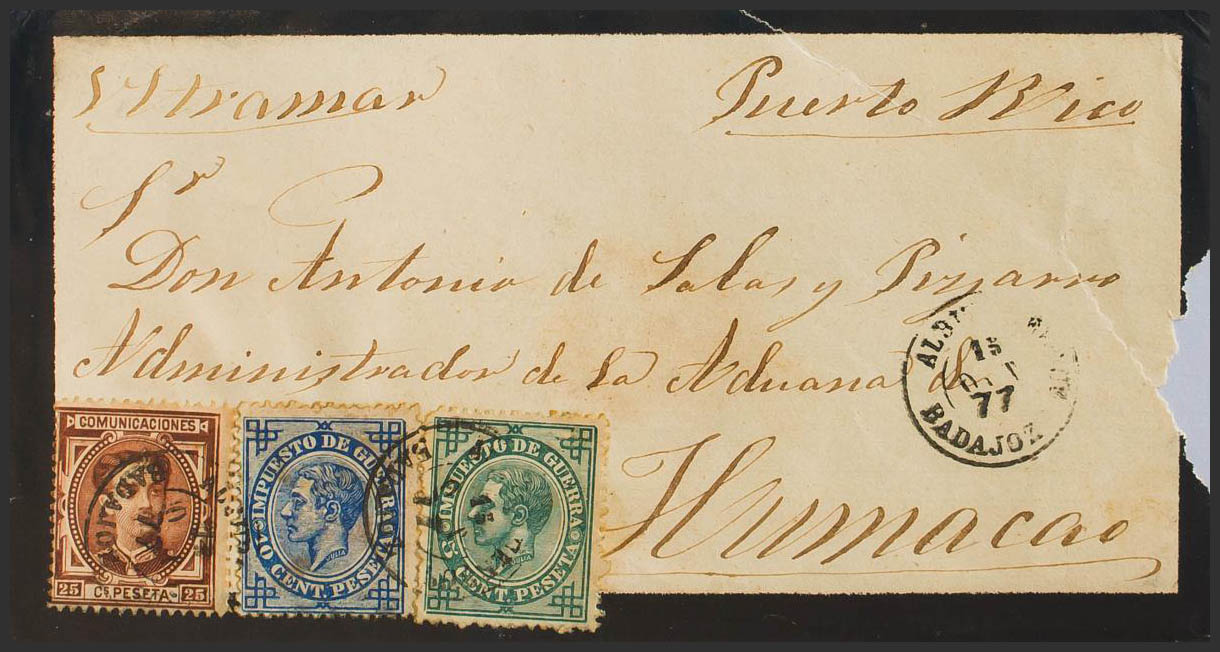 Ultramar Puerto Rico
Sr
Don Antonio de Salas y Pizarro
Administrador de la Aduana de
Humacao
15
77
BADAJOZ
COMUNICACIONES
25 Cs PESETA 25
IMPUESTO DE GUERRA
10 CENT. PESETA
JULIA
IMPUESTO DE GUERRA
5 CENT. PESETA
BADAJOZ